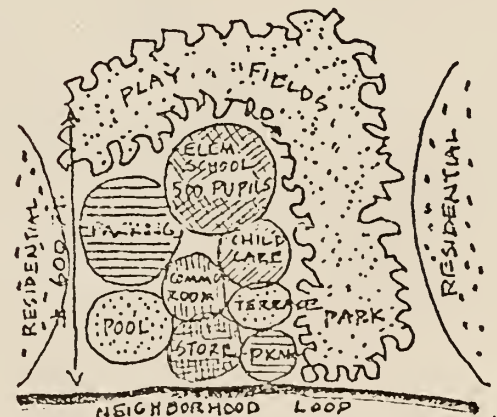 PLAY FIELDS
ELEM.
SCHOOL
500 PUPILS
PARKING
CHILD
CARE
COMMON
ROOM
TERRACE
POOL
STORE
PKNG
PARK
RESIDENTIAL
± 600 FT
RESIDENTIAL
NEIGHBORHOOD LOOP